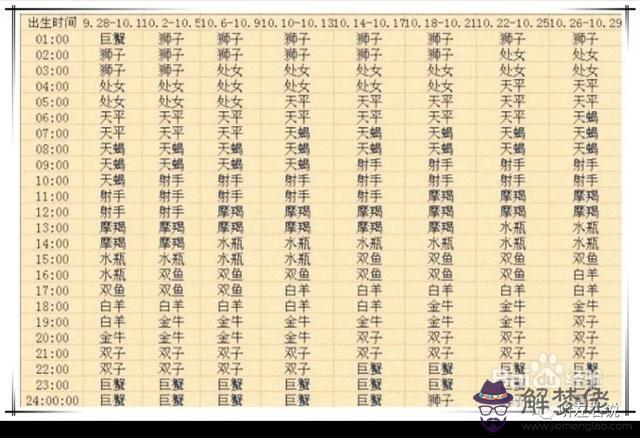 出生时间 9.28-10.1 10.2-10.5 10.6-10.9 10.10-10.13 10.14-10.17 10.18-10.21 10.22-10.25 10.26-10.29
01:00 巨蟹 狮子 狮子 狮子 狮子 狮子 狮子 狮子
02:00 狮子 狮子 狮子 狮子 狮子 狮子 处女 处女
03:00 狮子 狮子 处女 处女 处女 处女 处女 处女
04:00 处女 处女 处女 处女 处女 处女 天平 天平
05:00 处女 处女 天平 天平 天平 天平 天平 天平
06:00 天平 天平 天平 天平 天平 天平 天平 天蝎
07:00 天平 天平 天平 天蝎 天蝎 天蝎 天蝎 天蝎
08:00 天蝎 天蝎 天蝎 天蝎 天蝎 天蝎 天蝎 天蝎
09:00 天蝎 天蝎 天蝎 天蝎 射手 射手 射手 射手
10:00 天蝎 射手 射手 射手 射手 射手 射手 射手
11:00 射手 射手 射手 射手 射手 摩羯 摩羯 摩羯
12:00 射手 射手 摩羯 摩羯 摩羯 摩羯 摩羯 摩羯
13:00 摩羯 摩羯 摩羯 摩羯 摩羯 摩羯 水瓶 水瓶
14:00 摩羯 摩羯 水瓶 水瓶 水瓶 水瓶 水瓶 水瓶
15:00 水瓶 水瓶 水瓶 水瓶 双鱼 双鱼 双鱼 双鱼
16:00 水瓶 双鱼 双鱼 双鱼 双鱼 双鱼 双鱼 白羊
17:00 双鱼 双鱼 双鱼 白羊 白羊 白羊 白羊 白羊
18:00 白羊 白羊 白羊 白羊 白羊 金牛 金牛 金牛
19:00 白羊 金牛 金牛 金牛 金牛 金牛 金牛 双子
20:00 金牛 金牛 金牛 金牛 双子 双子 双子 双子
21:00 双子 双子 双子 双子 双子 双子 双子 双子
22:00 双子 双子 双子 双子 巨蟹 巨蟹 巨蟹 巨蟹
23:00 巨蟹 巨蟹 巨蟹 巨蟹 巨蟹 巨蟹 巨蟹
24:00:00 巨蟹 巨蟹 巨蟹 巨蟹 巨蟹 狮子
解梦佬
www.jiemenglao.com